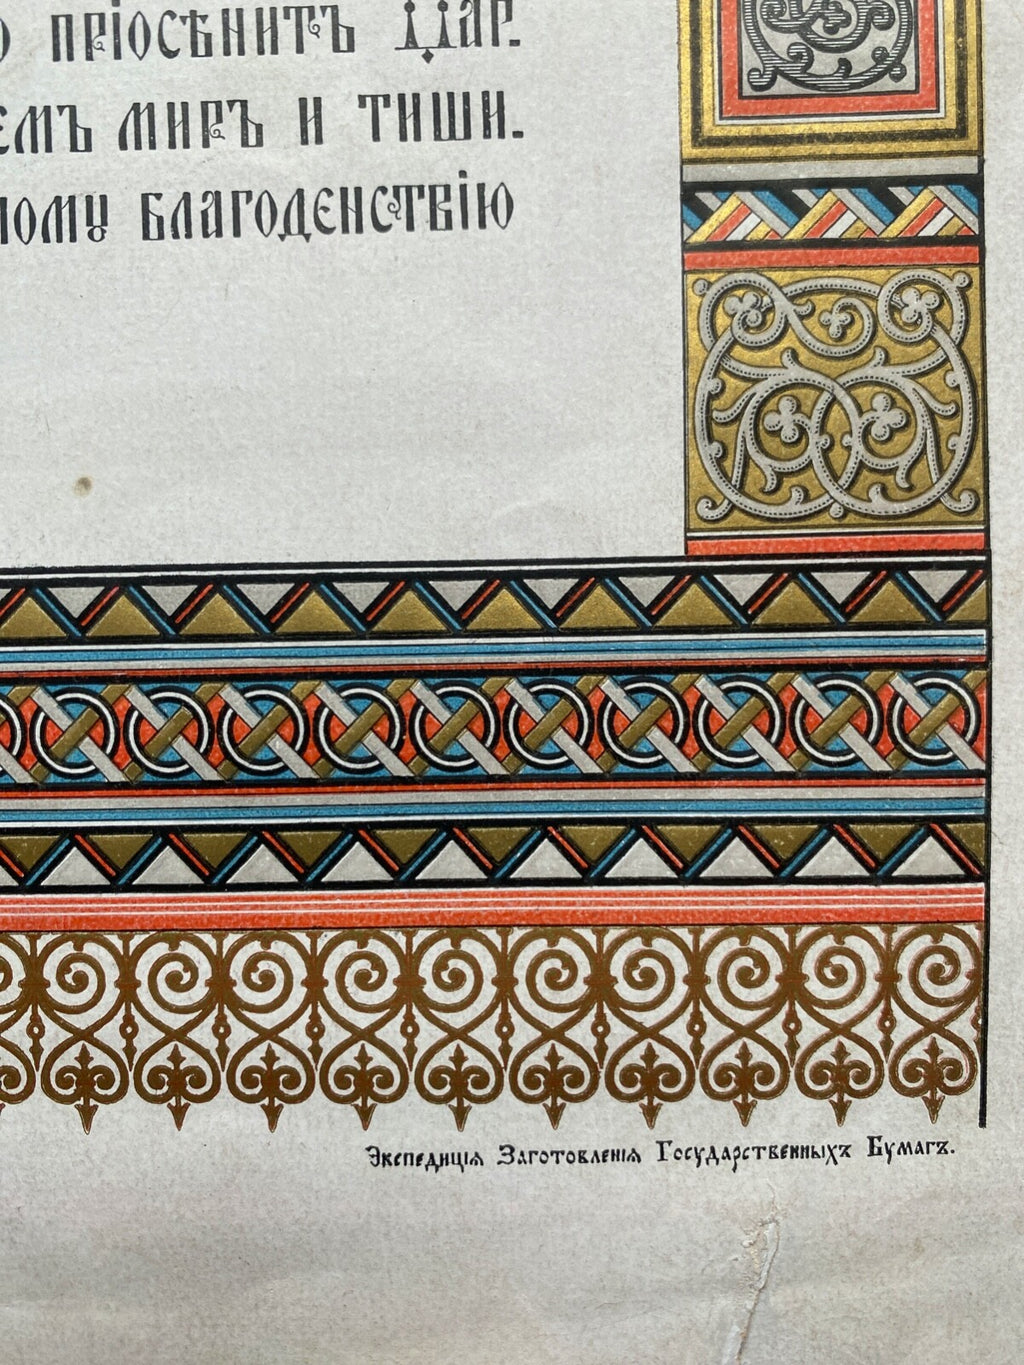 пріосѣнитъ Цар.
миръ и тиши.
благоденствію
Экспедиція Заготовленія Государственныхъ Бумагъ.